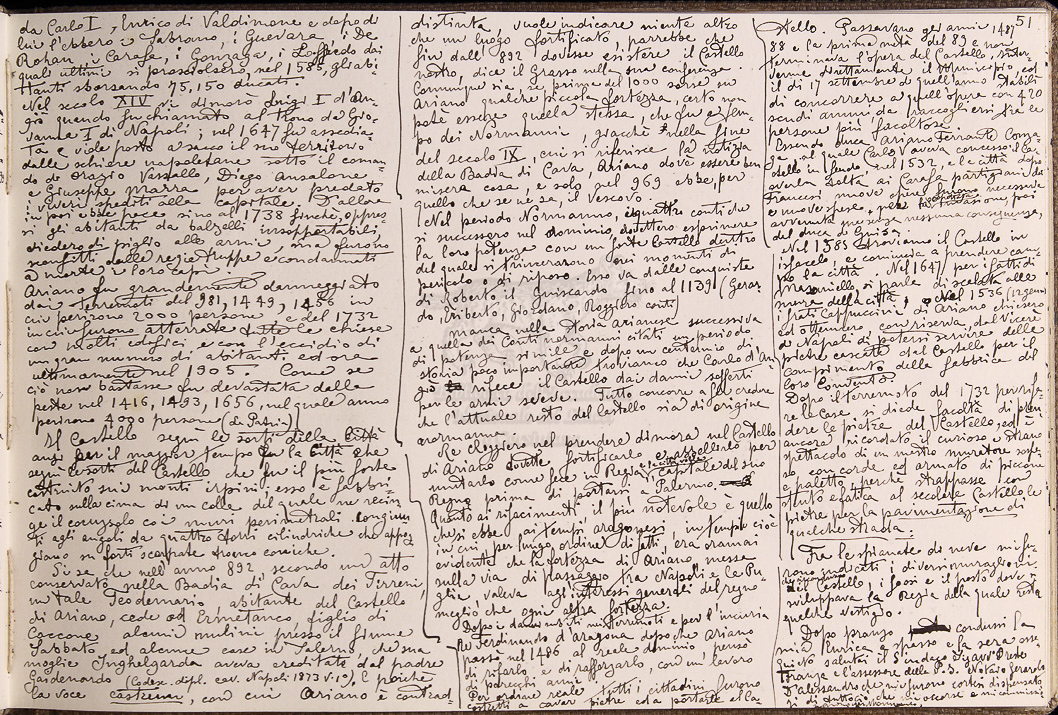 da Carlo I, Enrico di Valdimone e dopo di
lui l'ebbero i Sabrano, i Guevara, i De
Rohan, i Carafa, i Gonzaga, i Loffredo dai
quali ultimi si prosciolsero, nel 1585, gli abi-
tanti sborsando 75,150 ducati.
Nel secolo XIV vi dimorò Luigi I d'An-
giò quando fu chiamato al trono da Gio-
vanna I di Napoli; nel 1647 fu assedia-
ta e vide posto a sacco il suo territorio
dalle schiere napoletane sotto il coman
do de Orazio Vassallo, Diego Ansalone
e Giuseppe Marra per aver predato
i viveri spediti alla capitale. D'allora
in poi ebbe pace sino al 1738 finché, oppres
si gli abitanti da balzelli insopportabili
diedero di piglio alle armi, ma furono
sconfitti dalle regie truppe e condannati
a morte i loro capi.
Ariano fu grandemente danneggiato
dai terremoti del 981, 1449, 1456 in
cui perirono 2000 persone, e del 1732
in cui furono atterrate tutte le chiese
con molti edifici e con l'eccidio di
un gran numero di abitanti. ed ora
ultimamente nel 1905. Come se
ciò non bastasse fu devastata dalla
peste nel 1416, 1493, 1656, nel quale anno
perirono 4000 persone
Il Castello seguì le sorti della Città
anzi per il maggior tempo fu la Città che
seguì le sorti del Castello che fu il più forte
costruito sui monti irpini; esso è fabbri
cato sulla cima di un colle del quale ne recin
ge il cocuzzolo coi muri perimetrali congiun
ti agli angoli da quattro torri cilindriche che appog
giano su forti scarpate tronco coniche.
Si sa che nell'anno 892 secondo un atto
conservato nella Badia di Cava dei Tirreni,
un tale Teodemario, abitante del Castello
di Ariano, cede ad Ermetanco, figlio di
Caccone, alcuni mulini presso il fiume
Sabbato ed alcune case in Salerno, che sua
moglie Inghelgarda aveva ereditate dal padre
Gaidenardo (Codex. dipl. cav. Napoli 1873 V. 1°) E poiché
la voce castrum, con cui Ariano è contrad
distinta vuole indicare niente altro
che un luogo fortificato, parrebbe che
fin dall'892 dovesse esistere il Castello
nostro, dice il Grasso nella sua conferenza.
Comunque sia, se prima del 1000 sorse su
Ariano qualche piccola fortezza, certo non
poté essere quella stessa, che fu al tem-
po dei Normanni, giacché nella fine
del secolo IX, cui si riferisce la notizia
della Badia di Cava, Ariano dové essere ben
misera cosa, e solo nel 969 ebbe, per
quello che se ne sa, il Vescovo.
Nel periodo Normanno, i quattro conti che
si successero nel dominio, dovettero esprimere
la loro potenza con un forte Castello dentro
del quale si trincerarono nei momenti di
pericolo o di riposo. Ciò va dalle conquiste
di Roberto il Guiscardo fino al 1139 (Gerar
do, Eriberto, Giordano, Roggiero conti)
Manca nella storia arianese successiva
a quella dei Conti normanni citati un periodo
di potenza simile e dopo un centennio di
storia poco importante troviamo che Carlo d'An
giò rifece il Castello dai danni sofferti
per le armi sveve. Tutto concorre a far credere
che l'attuale resto del Castello sia di origine
normanna.
Re Roggiero nel prendere dimora nel Castello
di Ariano dovette fortificarlo e abbellirlo per
mutarlo come fece in Reggia, capitale del suo
Regno prima di portarsi a Palermo.
Quanto ai rifacimenti il più notevole è quello
che si ebbe ai tempi aragonesi, in tempo cioè
in cui, per lungo ordine di fatti, era oramai
evidente che la fortezza di Ariano, messa
sulla via di passaggio tra Napoli e la Pu-
glia, valeva agl'interessi generali del regno
meglio che ogni altra fortezza.
Dopo i danni subiti nei terremoti e per l'incuria
Re Ferdinando d'Aragona dopo che Ariano
passò nel 1486 al reale dominio pensò
di rifarlo, e di rafforzarlo, con un lavoro
di parecchi anni.
Per ordine reale tutti i cittadini furono
costretti a cavar pietre ed a portarle al Ca-
51
stello. Passarono gli anni 1487
88 e la prima metà del 89 e non
terminava l'opera del Castello, inter
venne direttamente il Municipio, ed
il dì 17 settembre di quell'anno stabilì
di concorrere a quell'opera con 420
scudi annui da raccogliersi tra le
persone più facoltose.
Essendo duca Ariano Ferrante Gonza
ga, al quale Carlo V aveva concesso il Ca
stello in feudo nel 1532, e la città dopo
averla tolta ai Carafa partigiani dei
francesi, nuove opere furono necessarie
e nuove spese, nella
avvenuta ma senza nessuna conseguenza,
del duca di Guisa.
Nel 1585 troviamo il Castello in
isfacelo, e comincia a prendere cam
po la città. Nel 1647, per i fatti di
Masaniello, si parla di scalata alle
mura della città; Nel 1536 (12 genn)
i frati Cappuccini di Ariano chiesero
ed ottennero, con riserva, dal Vicerè
di Napoli di potersi servire delle
pietre cascate dal Castello per il
compimento della fabbrica del
loro Convento.
Dopo il terremoto del 1732 per rifa-
re le case, si diede facoltà di pren
dere le pietre del Castello, ed è
ancora ricordato il curioso e strano
spettacolo di un mastro muratore sospe
so con corde ed armato di piccone
e paletto, perché strappasse con
stento e fatica al secolare Castello le
pietre per la pavimentazione di
qualche strada.
Tra le spianate di neve mi fu-
rono indicati i diversi muraglioni
del Castello, i fossi e il posto dove si
sviluppava la Reggia della quale resta
qualche vestigio.
Dopo pranzo condussi la
mia Enrica a spasso e la sera ose
quito salutai il Sindaco
e l'assessore della P. I. Notaio Gerardo
D'Alessandro che mi furono cortesi